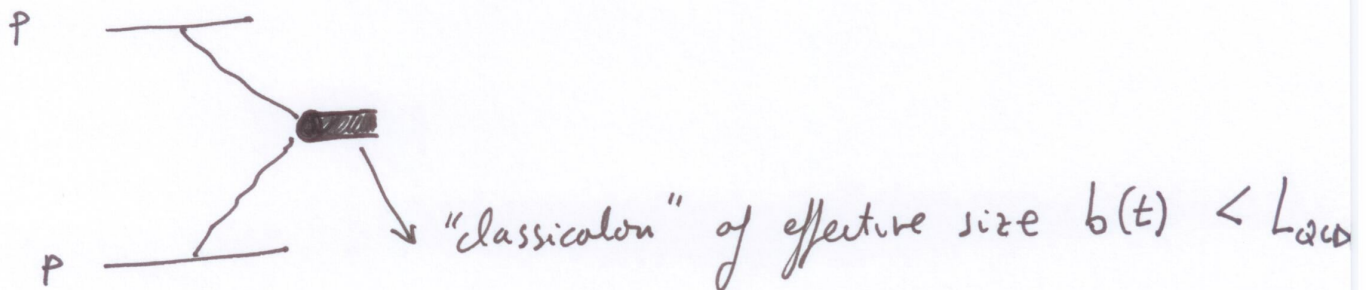 P
"classicalon" of effective size b(t) < L_QCD
P